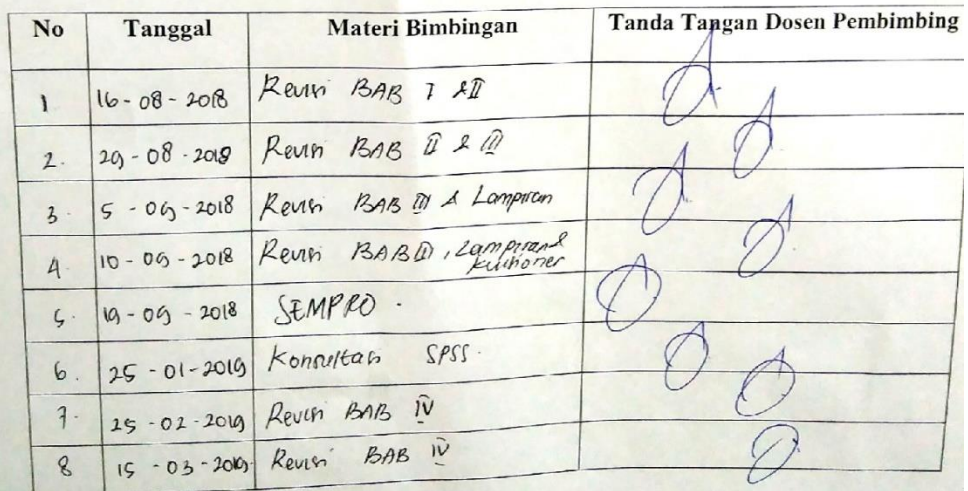 No Tanggal Materi Bimbingan Tanda Tangan Dosen Pembimbing
1 16-08-2018 Revisi BAB I & II
2. 29-08-2018 Revisi BAB II & III
3. 5-09-2018 Revisi BAB III & Lampiran
4. 10-09-2018 Revisi BAB III, Lampiran &
Kuisioner
5. 19-09-2018 SEMPRO.
6. 25-01-2019 Konsultasi SPSS.
7. 25-02-2019 Revisi BAB IV
8 15-03-2019 Revisi BAB IV